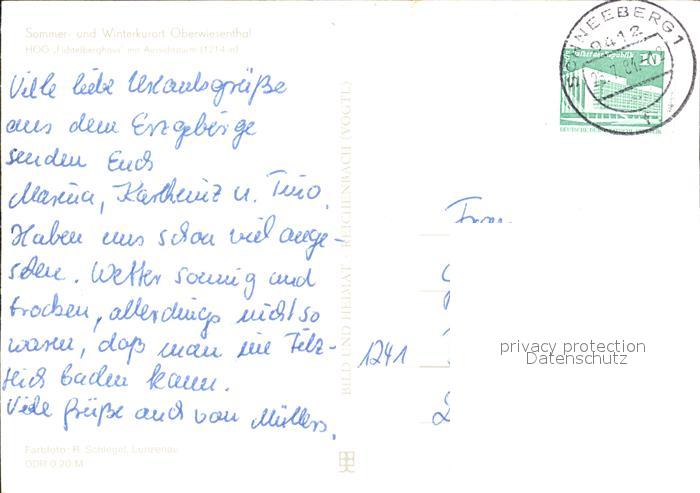 Sommer- und Winterkurort Oberwiesenthal
HOG „Fichtelberghaus" mit Aussichtsturm (1214 m)
Viele liebe Urlaubsgrüße
aus dem Erzgebirge
senden Euch
Marina, Karlheinz u. Tino.
Haben uns schon viel ange-
sehen. Wetter sonnig und
trocken, allerdings nicht so
warm, daß man im Filz-
teich baden kann.
Viele Grüße auch von Müllers.
Farbfoto: R. Schlegel, Lunzenau
DDR 0,20 M
BILD UND HEIMAT · REICHENBACH (VOGTL)
SCHNEEBERG 1
9412
10
DEUTSCHE DEMOKRATISCHE REPUBLIK
1241
privacy protection
Datenschutz